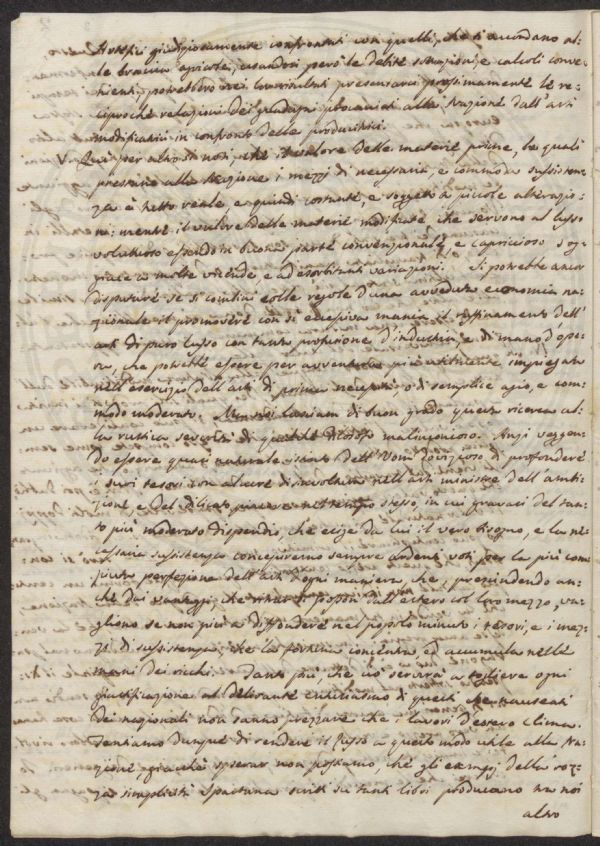 Artefici giudiziosamente confrontati con quelli, che si accordano al-
le braccia agricole, usandovi però le debite
nienti, potrebbero presentarci prossimamente le re-
ciproche relazioni dei guadagni alla Nazione dall'arti
modificatrici in confronto delle produttrici.
Qui per altro si noti, che il valore delle materie prime, le quali
prestano alla Nazione i mezzi di necessaria, e commoda sussisten-
za è netto reale e quindi costante, e soggetto a piccole alterazio-
ni; mentre il valore delle materie modificate che servono al lusso
voluttuoso essendo in buona parte convenzionale e capriccioso sog-
giace a molte vicende e ad esorbitanti variazioni. Si potrebbe ancor
disputare se si concilii colle regole d'una avveduta economia na-
zionale il promovere con sì eccessiva mania il raffinamento dell'
arti di puro lusso con tanta profusione d'industria, e di mano d'ope-
ra, che potrebbe essere per avventura più utilmente impiegata
nell'esercizio dell'arti di prima necessità o di semplice agio, e com-
modo moderato. Ma noi lasciam di buon grado questa ricerca al-
la rustica severità di qualche filosofo malinconico. Anzi veggen-
do essere quasi naturale istinto dell'Uom dovizioso il profondere
i suoi tesori con disinvoltura nell'arti ministre dell'ambi-
zione, e del dilicato piacere nel tempo stesso, in cui gravaci del tan-
to più moderato dispendio, che esige da lui il vero bisogno, e la ne-
cessaria sussistenza concepiremo sempre ardenti voti per la più com-
piuta perfezione dell'arti d'ogni maniera, che, prescindendo an-
che dai vantaggi, che ritrar si possono dall'estero col loro mezzo, va-
gliono se non più a diffondere nel popolo minuto i tesori, e i mez-
zi di sussistenza, che la fortuna concentra, ed accumula nelle
mani dei ricchi. Tanto più, che ciò servirà a togliere ogni
giustificazione al delirante entusiasmo di questi che nauseati
dei nazionali non sanno prezzare che i lavori d'estero clima.
Tentiamo dunque di rendere il lusso a questo modo utile alla Na-
zione giacchè sperar non possiamo che gli esempj della roz-
za simplicità Spartana scritti su tanti libri producano tra noi
altro